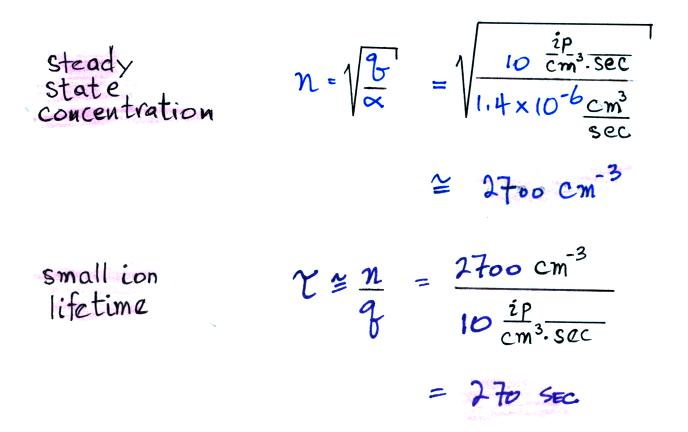 steady state concentration n = √(q/α) = √(10 ip/cm³·sec / 1.4 × 10⁻⁶ cm³/sec)
≅ 2700 cm⁻³
small ion lifetime τ ≅ n/q = 2700 cm⁻³ / 10 ip/cm³·sec
= 270 SEC